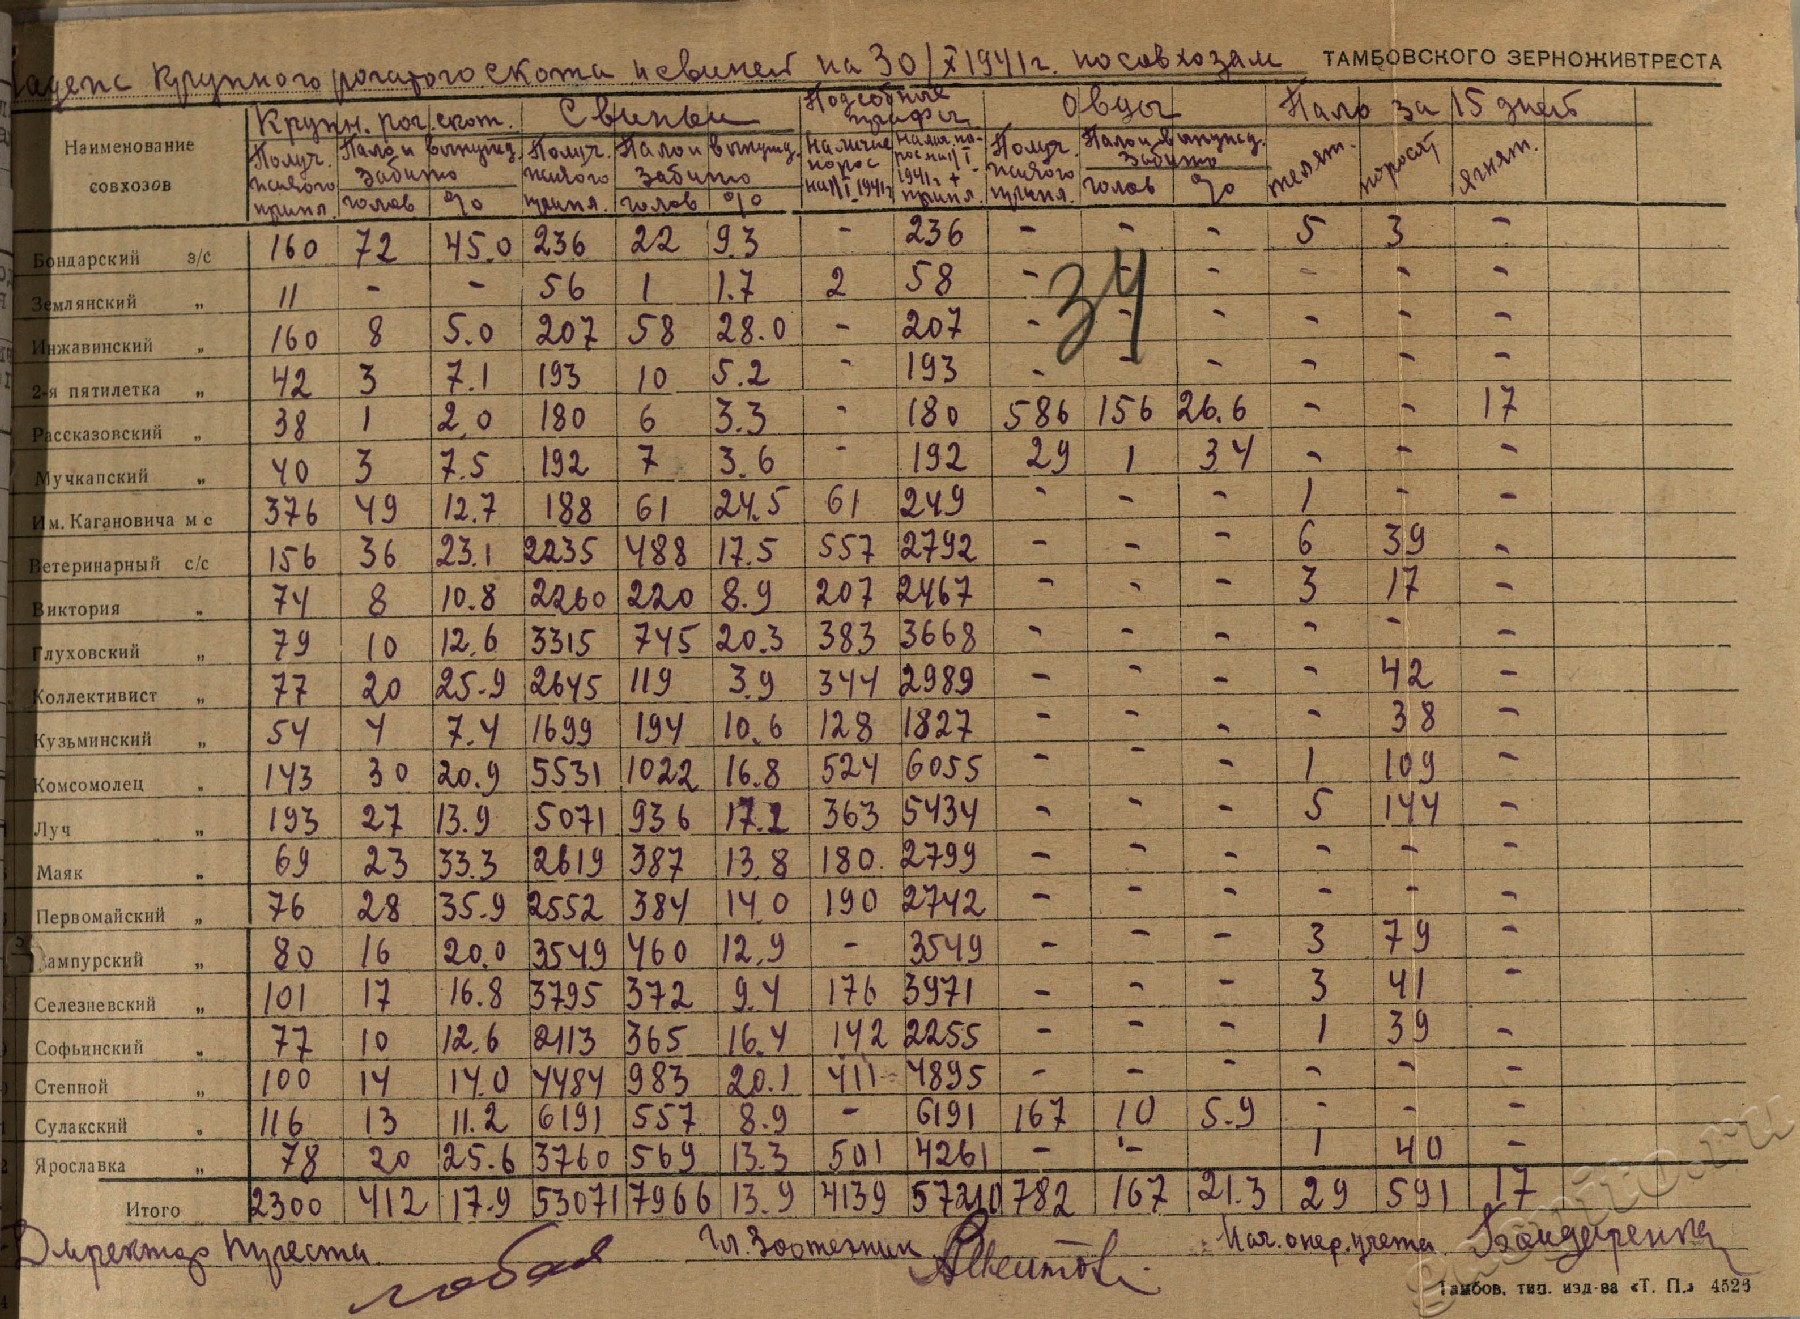 Падеж крупного рогатого скота и свиней на 30/X 1941 г. по совхозам ТАМБОВСКОГО ЗЕРНОЖИВТРЕСТА
Наименование совхозов
Крупн. рог. скот. Свиньи Подсобные цифры Овцы Пало за 15 дней
Получ. живого припл. Пало и вынужд. забито голов % Получ. живого припл. Пало и вынужд. забито голов % Наличие порос на 1/I 1941 г. Налич. порос на 1/I 1941 г. + припл. Получ. живого припл. Пало и вынужд. забито голов % телят. поросят ягнят.
Бондарский з/с 160 72 45.0 236 22 9.3 - 236 - - - 5 3 -
Землянский „ 11 - - 56 1 1.7 2 58 - - - - - -
34
Инжавинский „ 160 8 5.0 207 58 28.0 - 207 - - - - - -
2-я пятилетка „ 42 3 7.1 193 10 5.2 - 193 - - - - - -
Рассказовский „ 38 1 2.0 180 6 3.3 - 180 586 156 26.6 - - 17
Мучкапский „ 40 3 7.5 192 7 3.6 - 192 29 1 34 - - -
Им. Кагановича м с 376 49 12.7 188 61 24.5 61 249 - - - 1 - -
Ветеринарный с/с 156 36 23.1 2235 488 17.5 557 2792 - - - 6 39 -
Виктория „ 74 8 10.8 2260 220 8.9 207 2467 - - - 3 17 -
Глуховский „ 79 10 12.6 3315 745 20.3 383 3668 - - - - - -
Коллективист „ 77 20 25.9 2645 119 3.9 344 2989 - - - - 42 -
Кузьминский „ 54 4 7.4 1699 194 10.6 128 1827 - - - - 38 -
Комсомолец „ 143 30 20.9 5531 1022 16.8 524 6055 - - - 1 109 -
Луч „ 193 27 13.9 5071 936 17.2 363 5434 - - - 5 144 -
Маяк „ 69 23 33.3 2619 387 13.8 180 2799 - - - - - -
Первомайский „ 76 28 35.9 2552 384 14.0 190 2742 - - - - - -
ампурский „ 80 16 20.0 3549 460 12.9 - 3549 - - - 3 79 -
Селезневский „ 101 17 16.8 3795 372 9.4 176 3971 - - - 3 41 -
Софьинский „ 77 10 12.6 2113 365 16.4 142 2255 - - - 1 39 -
Степной „ 100 14 14.0 4484 983 20.1 411 4895 - - - - - -
Сулакский „ 116 13 11.2 6191 557 8.9 - 6191 167 10 5.9 - - -
Ярославка „ 78 20 25.6 3760 569 13.3 501 4261 - - - 1 40 -
Итого 2300 412 17.9 53071 7966 13.9 4139 57210 782 167 21.3 29 591 17
Директор треста Гл. Зоотехник Нач. опер. учета Бондаренко
Тамбов, тип. изд-ва «Т. П.» 4526
gaspito.ru